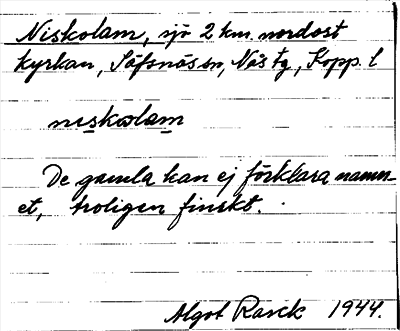 Niskolam, sjö 2 km. nordost
kyrkan, Säfsnäs sn, Nås tg, Kopp. l
niskolam
De gamla kan ej förklara namn-
et, troligen finskt.
Algot Rasck 1944.